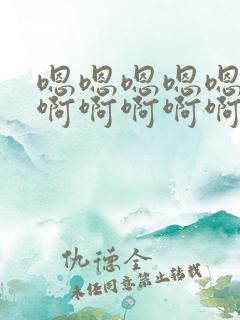 嗯嗯嗯嗯嗯
啊啊啊啊啊
仇德全
未经同意禁止转载